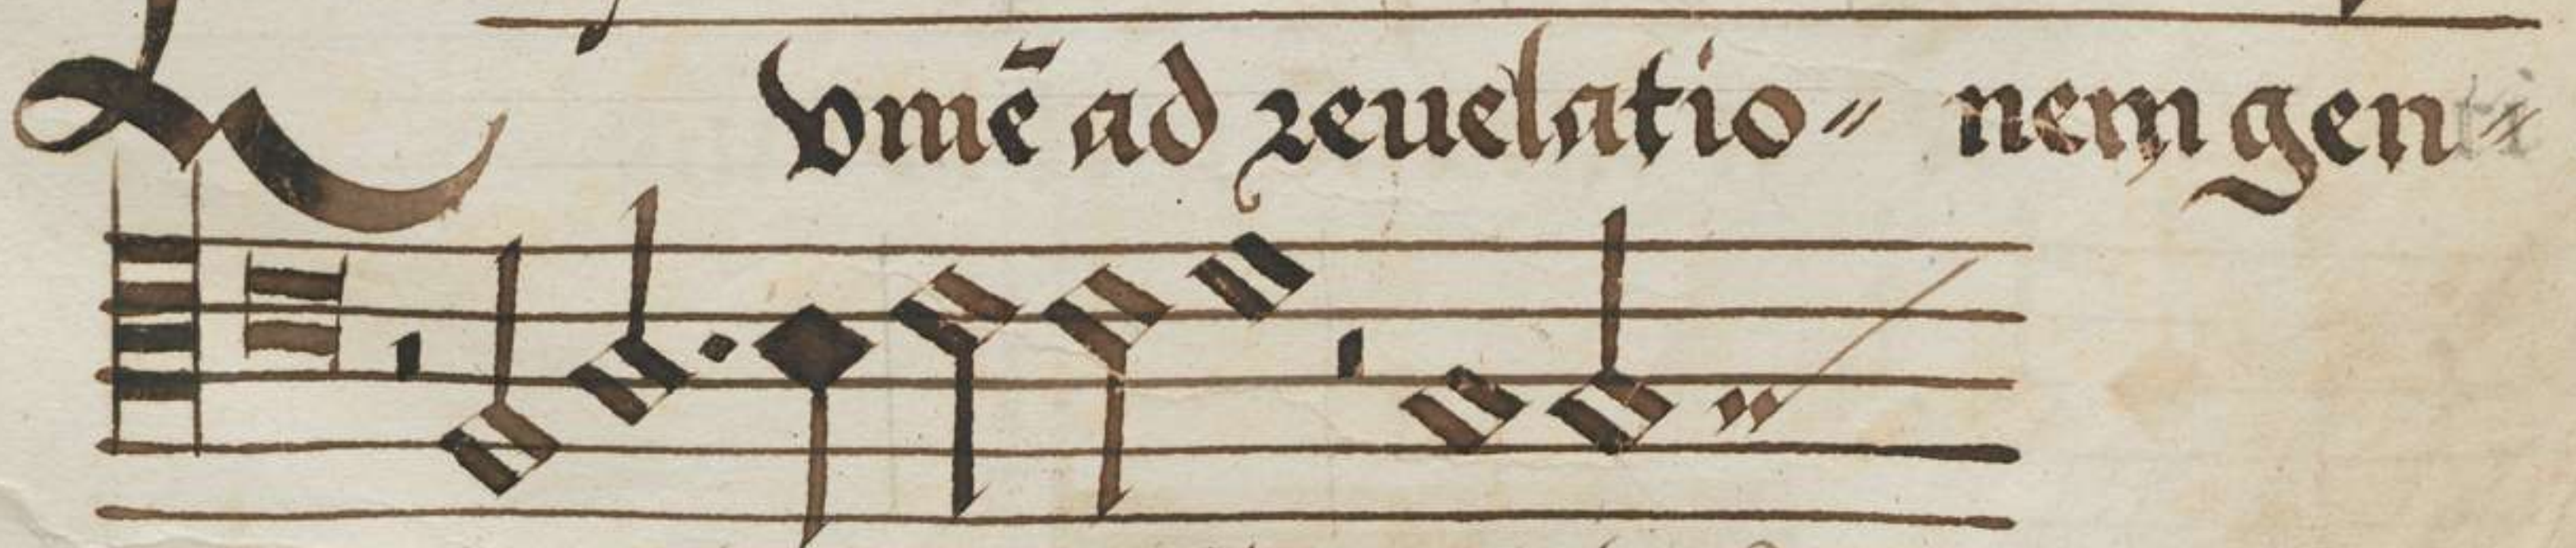 Lvmē ad reuelatio〃 nem gen〃